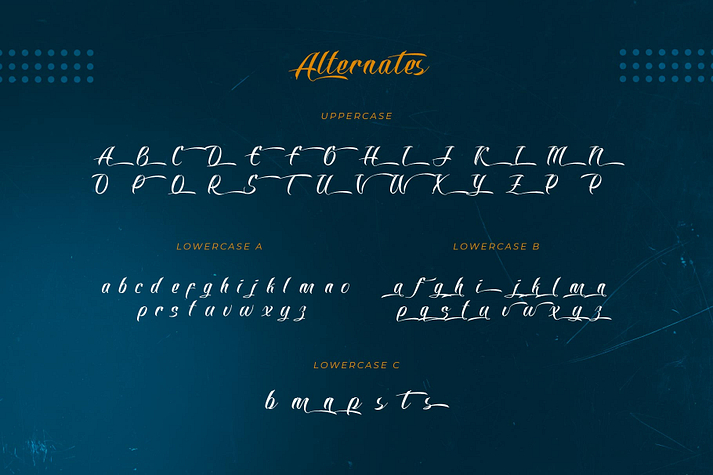 Alternates
UPPERCASE
A B C D E F G H I J K L M N
O P Q R S T U V W X Y Z P P
LOWERCASE A
a b c d e f g h i j k l m n o
p r s t u v w x y z
LOWERCASE B
a f g h i j k l m n
p q s t u v w x y z
LOWERCASE C
b m n p s t s